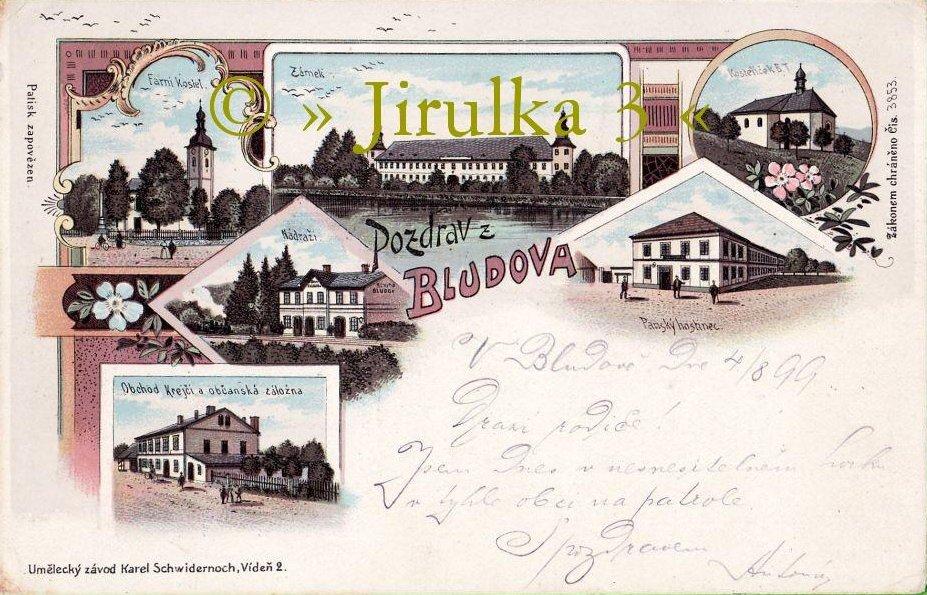 Farní Kostel.
Zámek.
Kostelíček B.T.
© » Jirulka 3 «
Palisk zapovězen
Zákonem chráněno Čís. 3853.
Nádraží.
Pozdrav z
BLUDOVA
BLUDOV
Panský hostinec
Obchod Krejčí a občanská záložna
V Bludově Dne 4/8 99
Drazí rodiče!
Jsem dnes v nesnesitelném horku
v týhle obci na patrole.
S pozdravem
Antonín
Umělecký závod Karel Schwidernoch, Vídeň 2.